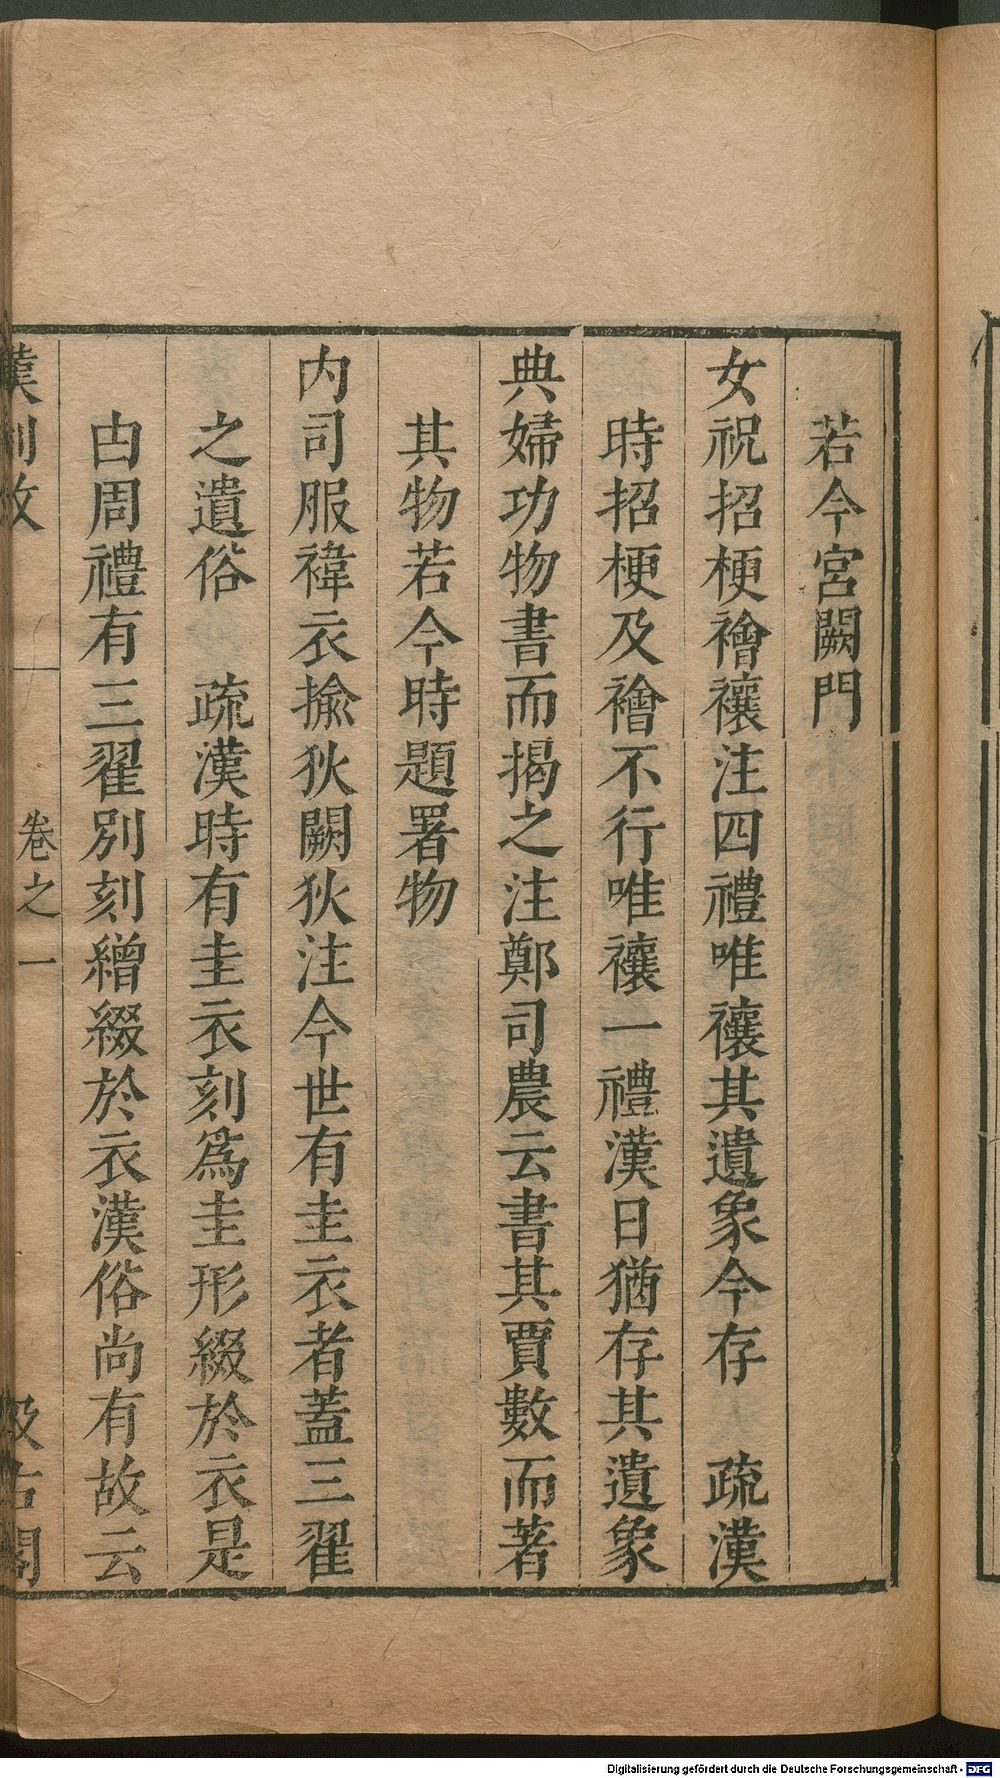 若今宮闕門
女祝招梗禬禳注四禮唯禳其遺象今存　疏漢
時招梗及禬不行唯禳一禮漢日猶存其遺象
典婦功物書而揭之注鄭司農云書其賈數而著
其物若今時題署物
内司服褘衣揄狄闕狄注今世有圭衣者蓋三翟
之遺俗　疏漢時有圭衣刻爲圭形綴於衣是
由周禮有三翟別刻繒綴於衣漢俗尚有故云
漢制攷　卷之一　汲古閣
Digitalisierung gefördert durch die Deutsche Forschungsgemeinschaft - DFG